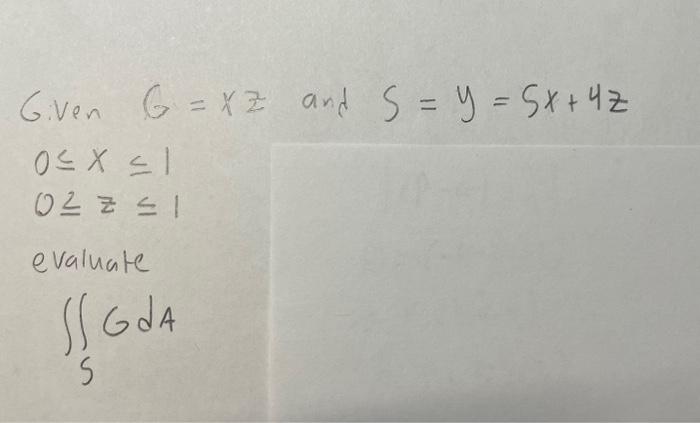 Given G = xz and S = y = 5x+4z
0 ≤ x ≤ 1
0 ≤ z ≤ 1
evaluate
∬ G dA
S